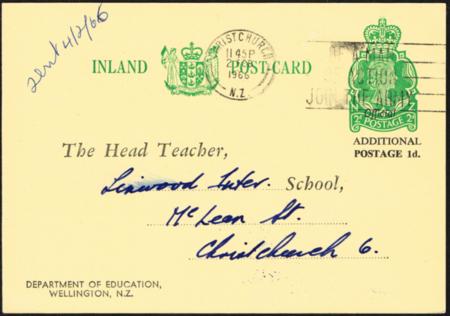 sent 4/2/66
INLAND POST-CARD
CHRISTCHURCH
11 45P
1966
N.Z.
JOIN THE ARMY
Official
2d POSTAGE 2d
ADDITIONAL
POSTAGE 1d.
The Head Teacher,
Linwood Inter. School,
McLean St.
Christchurch 6.
DEPARTMENT OF EDUCATION,
WELLINGTON, N.Z.